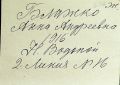 Бляжко
Анна Андреевна
1916
Н Водопой
2 Линия N 16